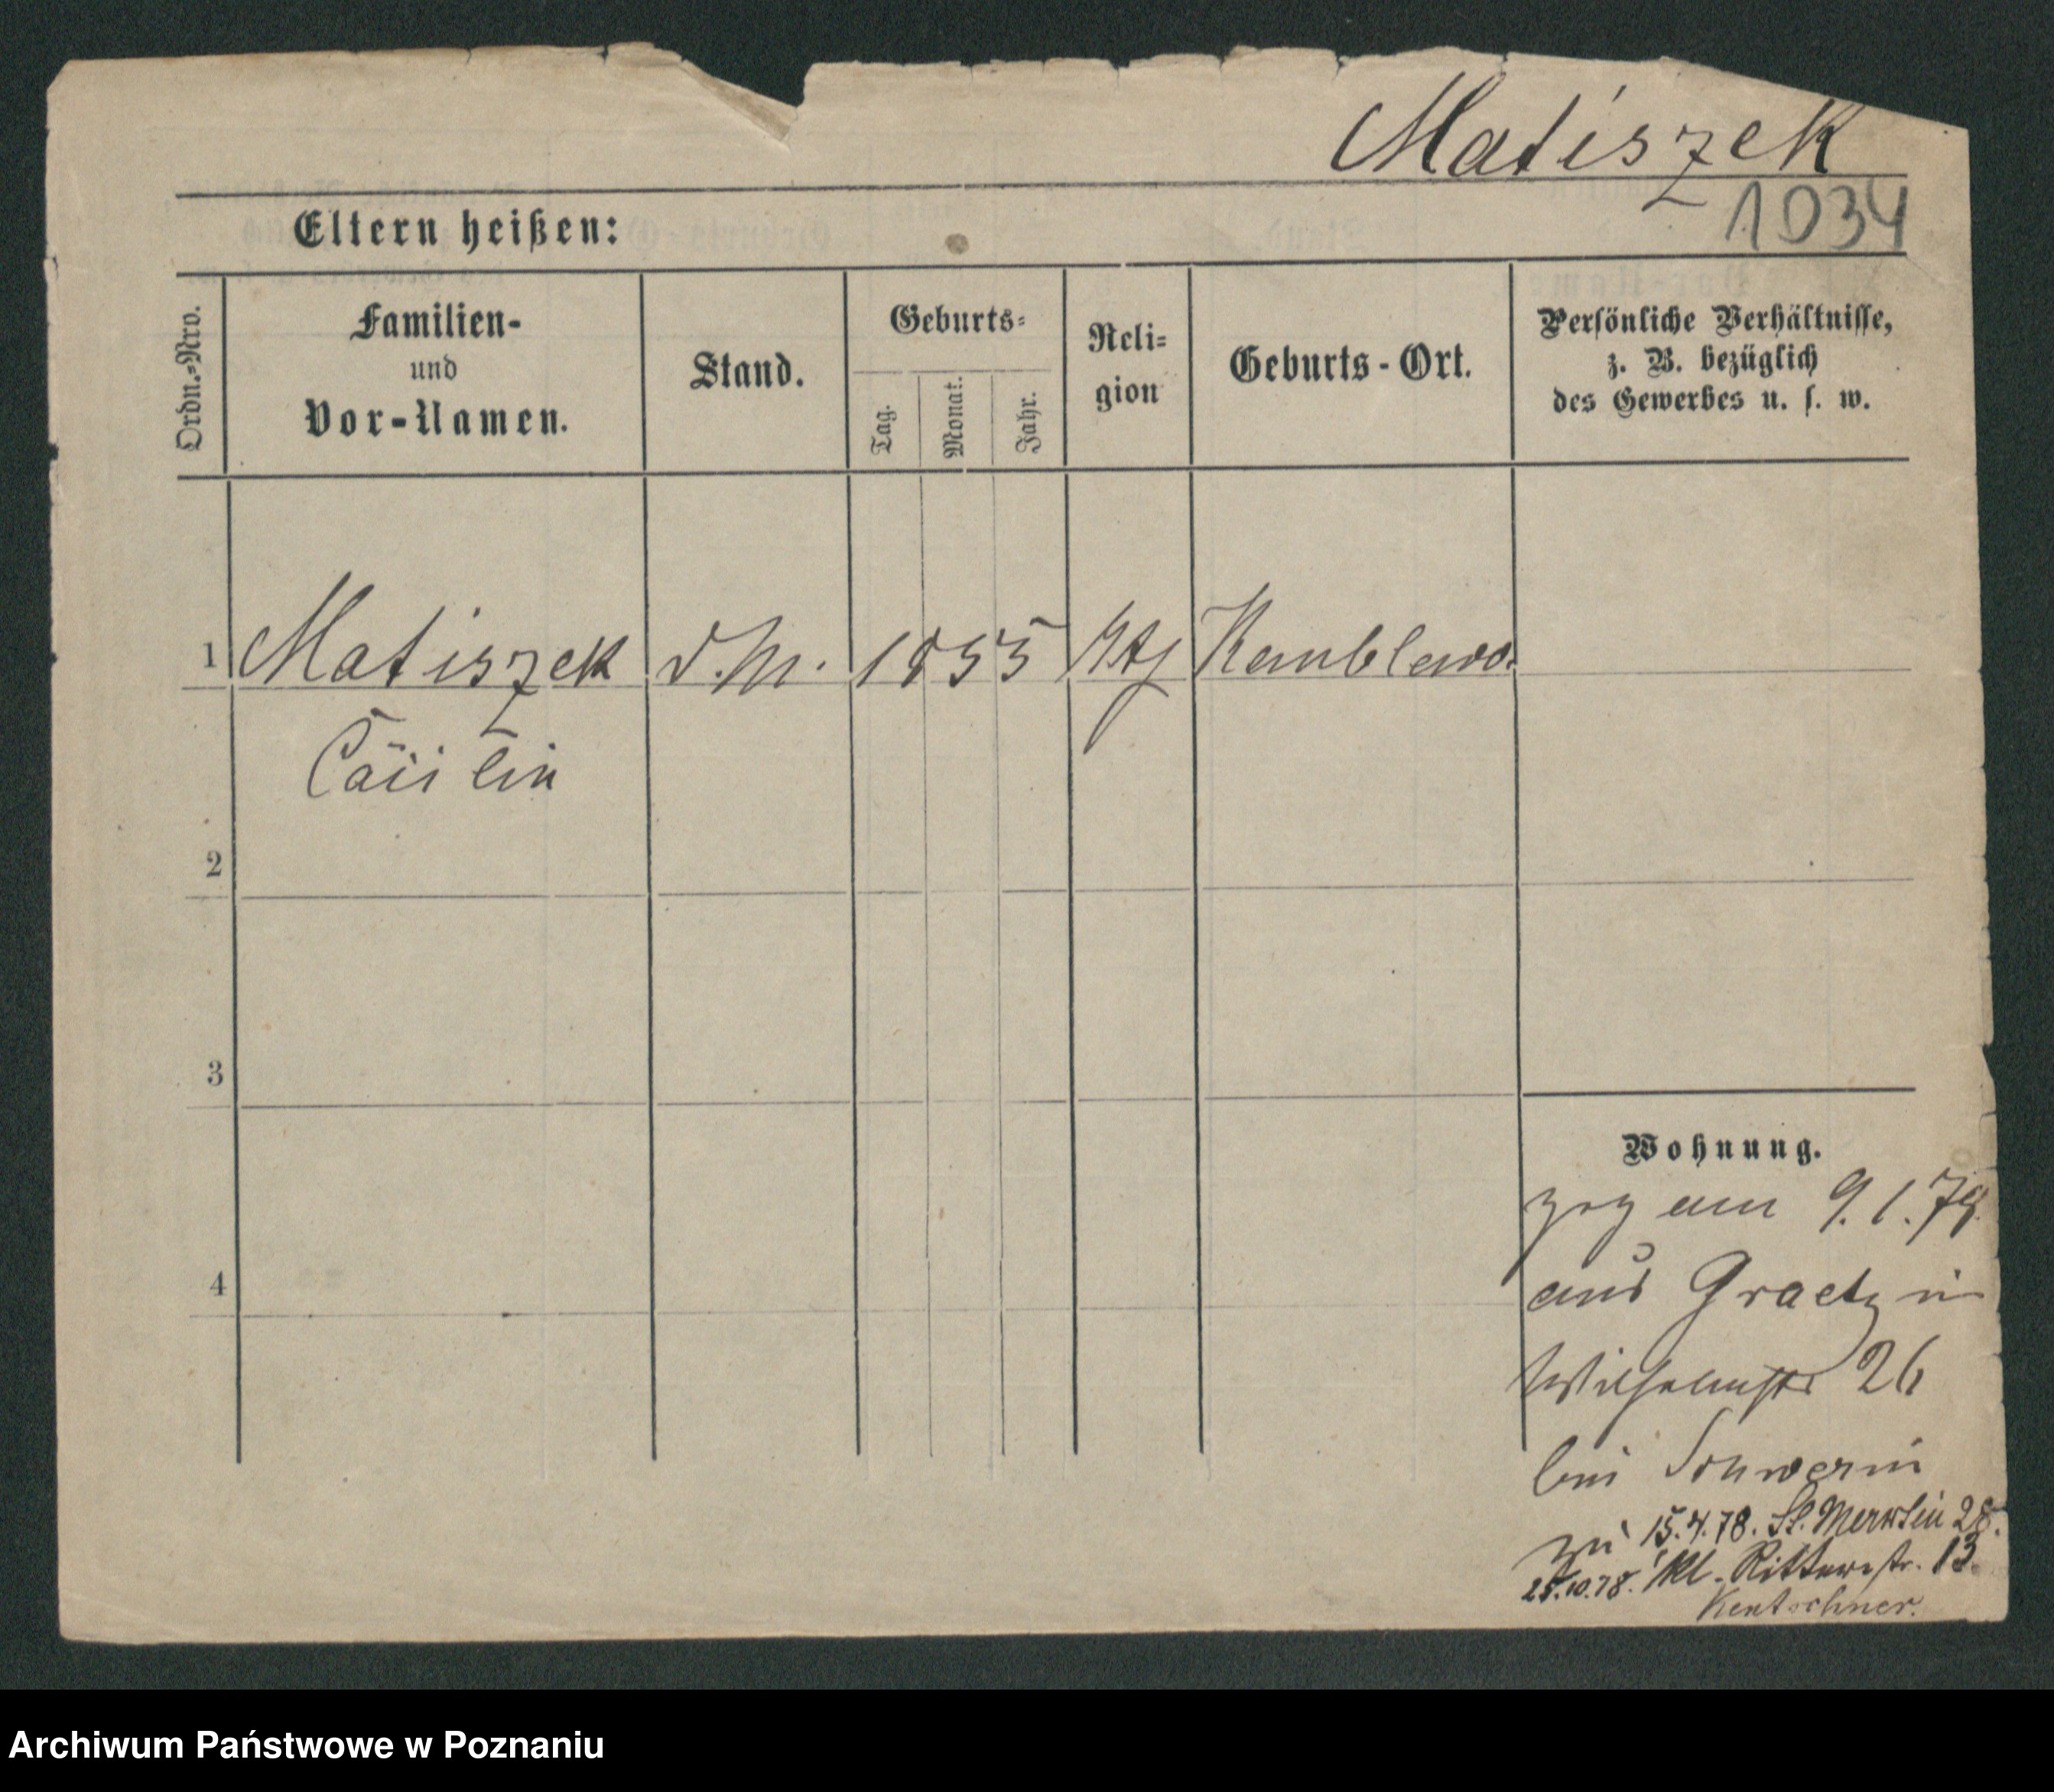 Matiszek
1034
Eltern heißen:
Ordn.-Nro.
Familien-
und
Vor-Namen.
Stand.
Geburts-
Tag.
Monat.
Jahr.
Reli-
gion
Geburts-Ort.
Persönliche Verhältnisse,
z. B. bezüglich
des Gewerbes u. s. w.
1 Matiszek d. M. 1855 Kamblewo.
Cäcilin
2
3
4
Wohnung.
zog am 9.1.78
aus Graetz in
Wilhelmstr 26
bei Schwerin
zu 15.4.78. St. Martin 28.
25.10.78. Kl. Ritterstr. 13.
Kentschner.
Archiwum Państwowe w Poznaniu